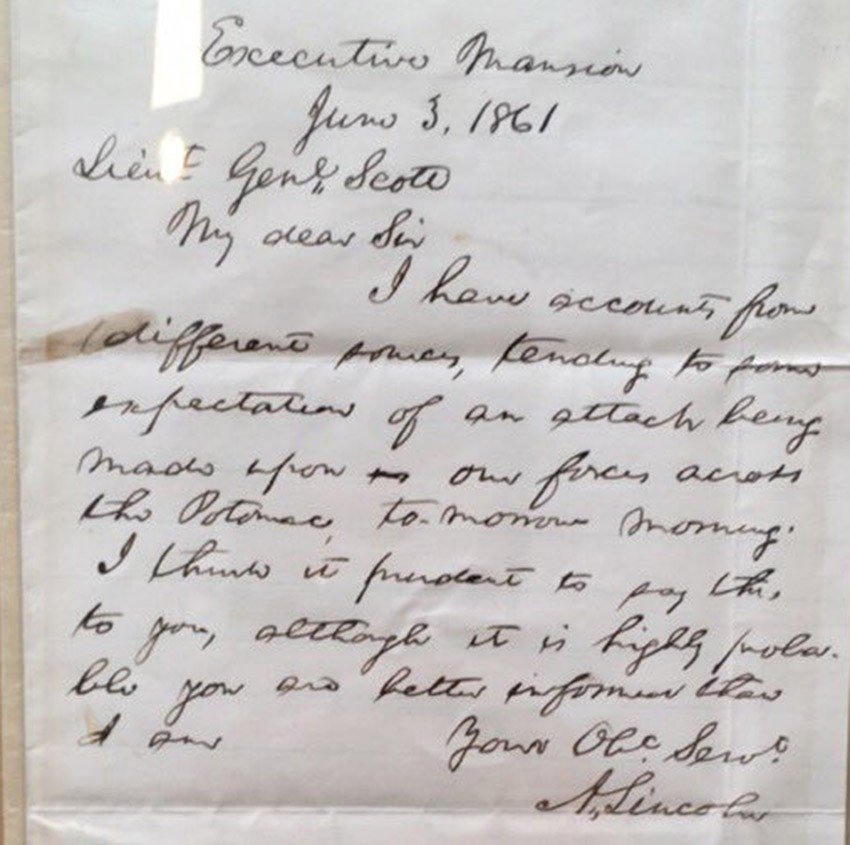 Executive Mansion
June 3, 1861
Lieut. Genl. Scott
My dear Sir
I have accounts from
different sources, tending to some
expectation of an attack being
made upon our forces across
the Potomac, to-morrow morning.
I think it prudent to say this
to you, although it is highly proba-
ble you are better informed than
I am
Your Obt. Servt.
A. Lincoln